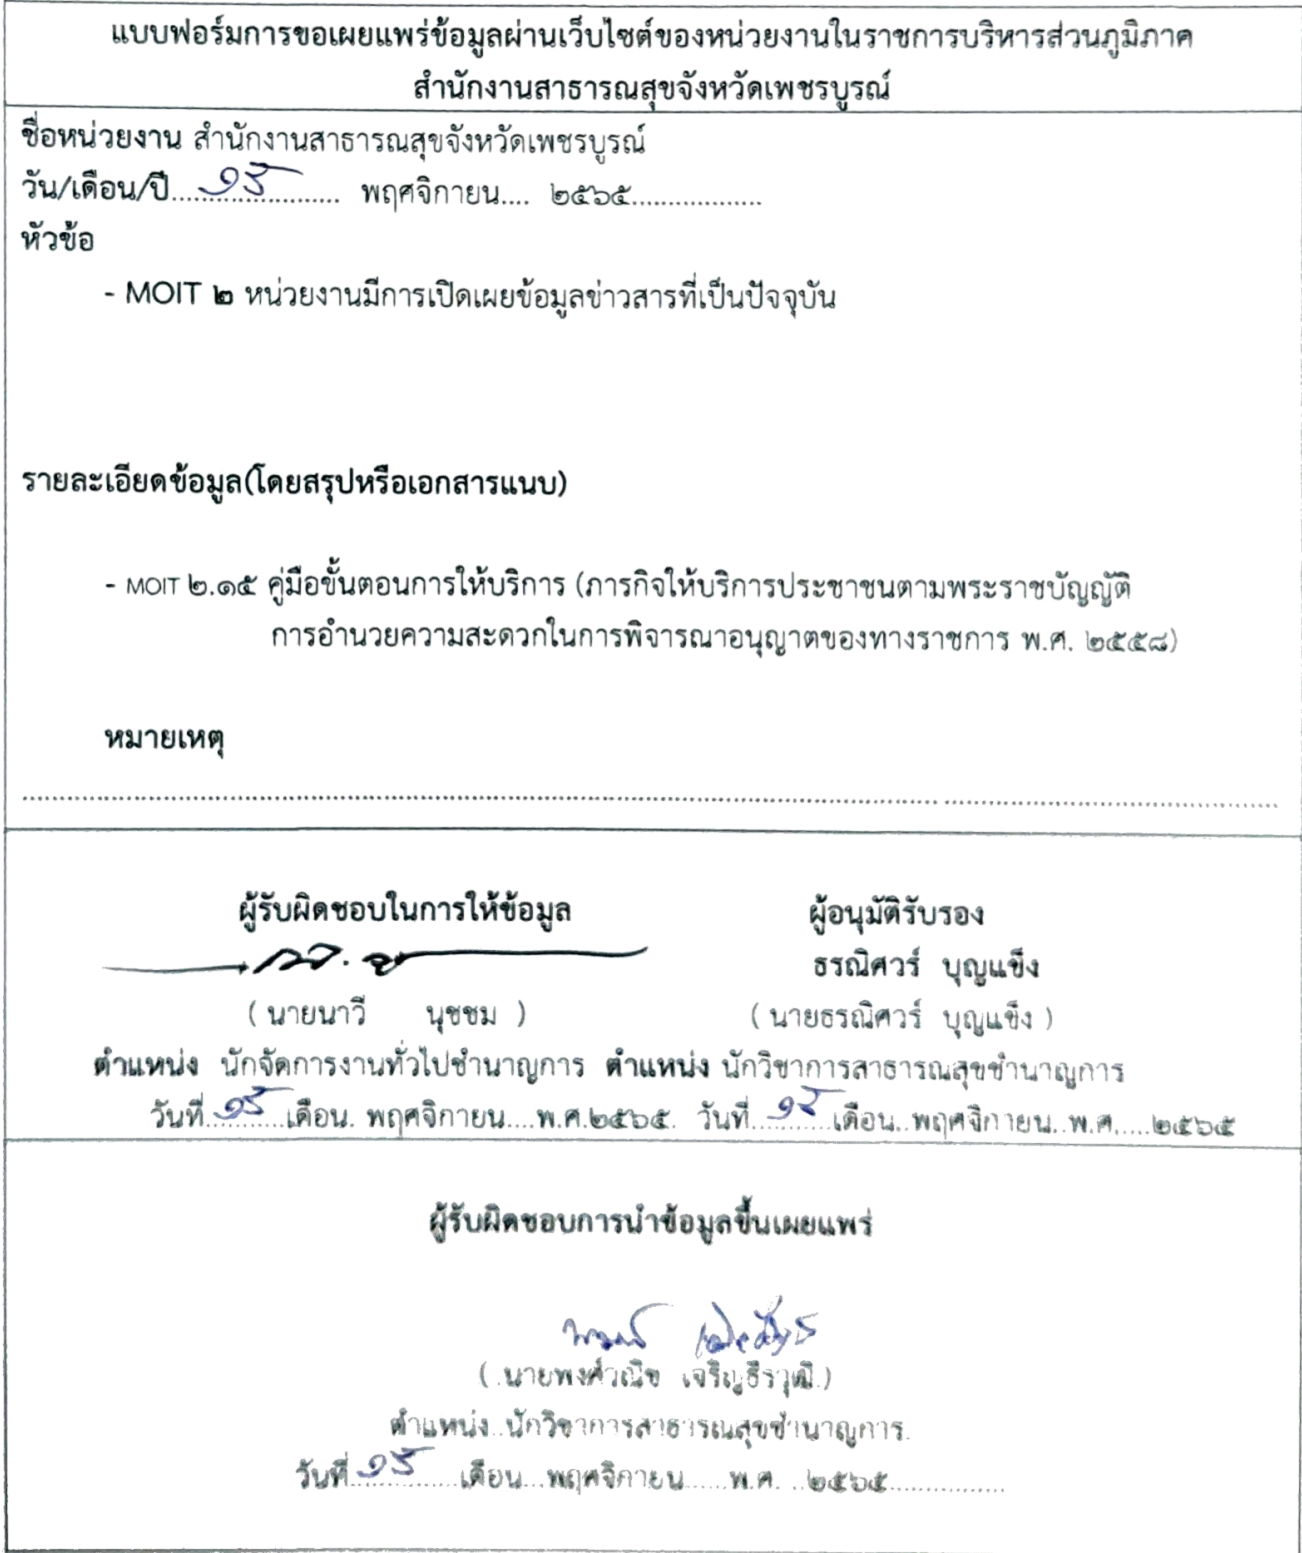 แบบฟอร์มการขอเผยแพร่ข้อมูลผ่านเว็บไซต์ของหน่วยงานในราชการบริหารส่วนภูมิภาค
สำนักงานสาธารณสุขจังหวัดเพชรบูรณ์
ชื่อหน่วยงาน สำนักงานสาธารณสุขจังหวัดเพชรบูรณ์
วัน/เดือน/ปี...................... พฤศจิกายน.... ๒๕๖๕.................
หัวข้อ
- MOIT ๒ หน่วยงานมีการเปิดเผยข้อมูลข่าวสารที่เป็นปัจจุบัน
รายละเอียดข้อมูล(โดยสรุปหรือเอกสารแนบ)
- MOIT ๒.๑๕ คู่มือขั้นตอนการให้บริการ (ภารกิจให้บริการประชาชนตามพระราชบัญญัติ
การอำนวยความสะดวกในการพิจารณาอนุญาตของทางราชการ พ.ศ. ๒๕๕๘)
หมายเหตุ
ผู้รับผิดชอบในการให้ข้อมูล ผู้อนุมัติรับรอง
ธรณิศวร์ บุญแข็ง
( นายนาวี นุชชม ) ( นายธรณิศวร์ บุญแข็ง )
ตำแหน่ง นักจัดการงานทั่วไปชำนาญการ ตำแหน่ง นักวิชาการสาธารณสุขชำนาญการ
วันที่...........เดือน. พฤศจิกายน....พ.ศ.๒๕๖๕. วันที่...........เดือน..พฤศจิกายน..พ.ศ.....๒๕๖๕
ผู้รับผิดชอบการนำข้อมูลขึ้นเผยแพร่
(.นายพงศ์วณิช เจริญธีรวุฒิ.)
ตำแหน่ง..นักวิชาการสาธารณสุขชำนาญการ.
วันที่...............เดือน...พฤศจิกายน......พ.ศ. ..๒๕๖๕................